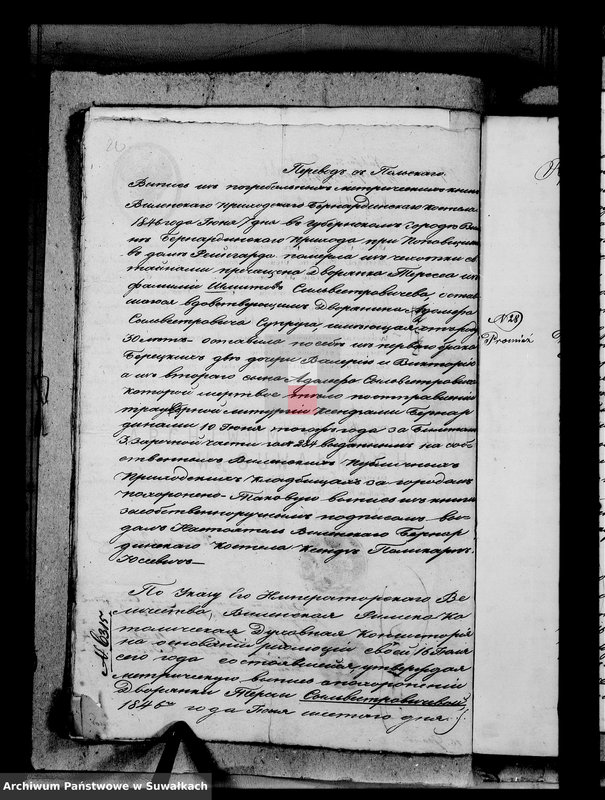 20
Переводъ съ Польскаго.
Выпись изъ погребальныхъ метрическихъ книгъ
Виленскаго Приходскаго Бернардинскаго костела
1846 года Іюня 7 дня въ губернскомъ городѣ Виль
нѣ Бернардинскаго прихода при Поповщизнѣ
въ домѣ Рейнгарда померла изъ чахотки св.
тайнами пріобщена Дворянка Тереса изъ
фамиліи Сильвестровичева, оста
вшаяся вдовствующимъ Дворянина Адольфа
Сильвестровича Супруга имѣющая отъ роду
30 лѣтъ оставила послѣ себя изъ перваго брака
двѣ дочери Валерію и Викторію
а изъ втораго сына Адольфа Сильвестровича
которой мертвое тѣло по отправленіи
траурной литургіи Ксендзами Бернар
динами 10 Іюня тогожъ года за билетомъ
3. Заречной части за № 334 выданнымъ на
Виленскихъ публичныхъ
Приходскихъ кладбищахъ за городомъ
похоронено. Таковую выпись изъ книгъ
засобственноручнымъ подписомъ вы
далъ Настоятель Виленскаго Бернар
динскаго костела Ксендзъ Поликарпъ
Юсевичъ.
По Указу Его Императорскаго Ве
личества, Виленская Римско-Ка
толическая Духовная Консисторія
на основаніи резолюціи своей 16 Іюня
сего года состоявшейся утверждая
метрическую выпись о похороненіи
Дворянки Тересы Сильвестровичевой,
1846 года Іюня шестаго дня
№ 6315
№ 28
Promież
Archiwum Państwowe w Suwałkach